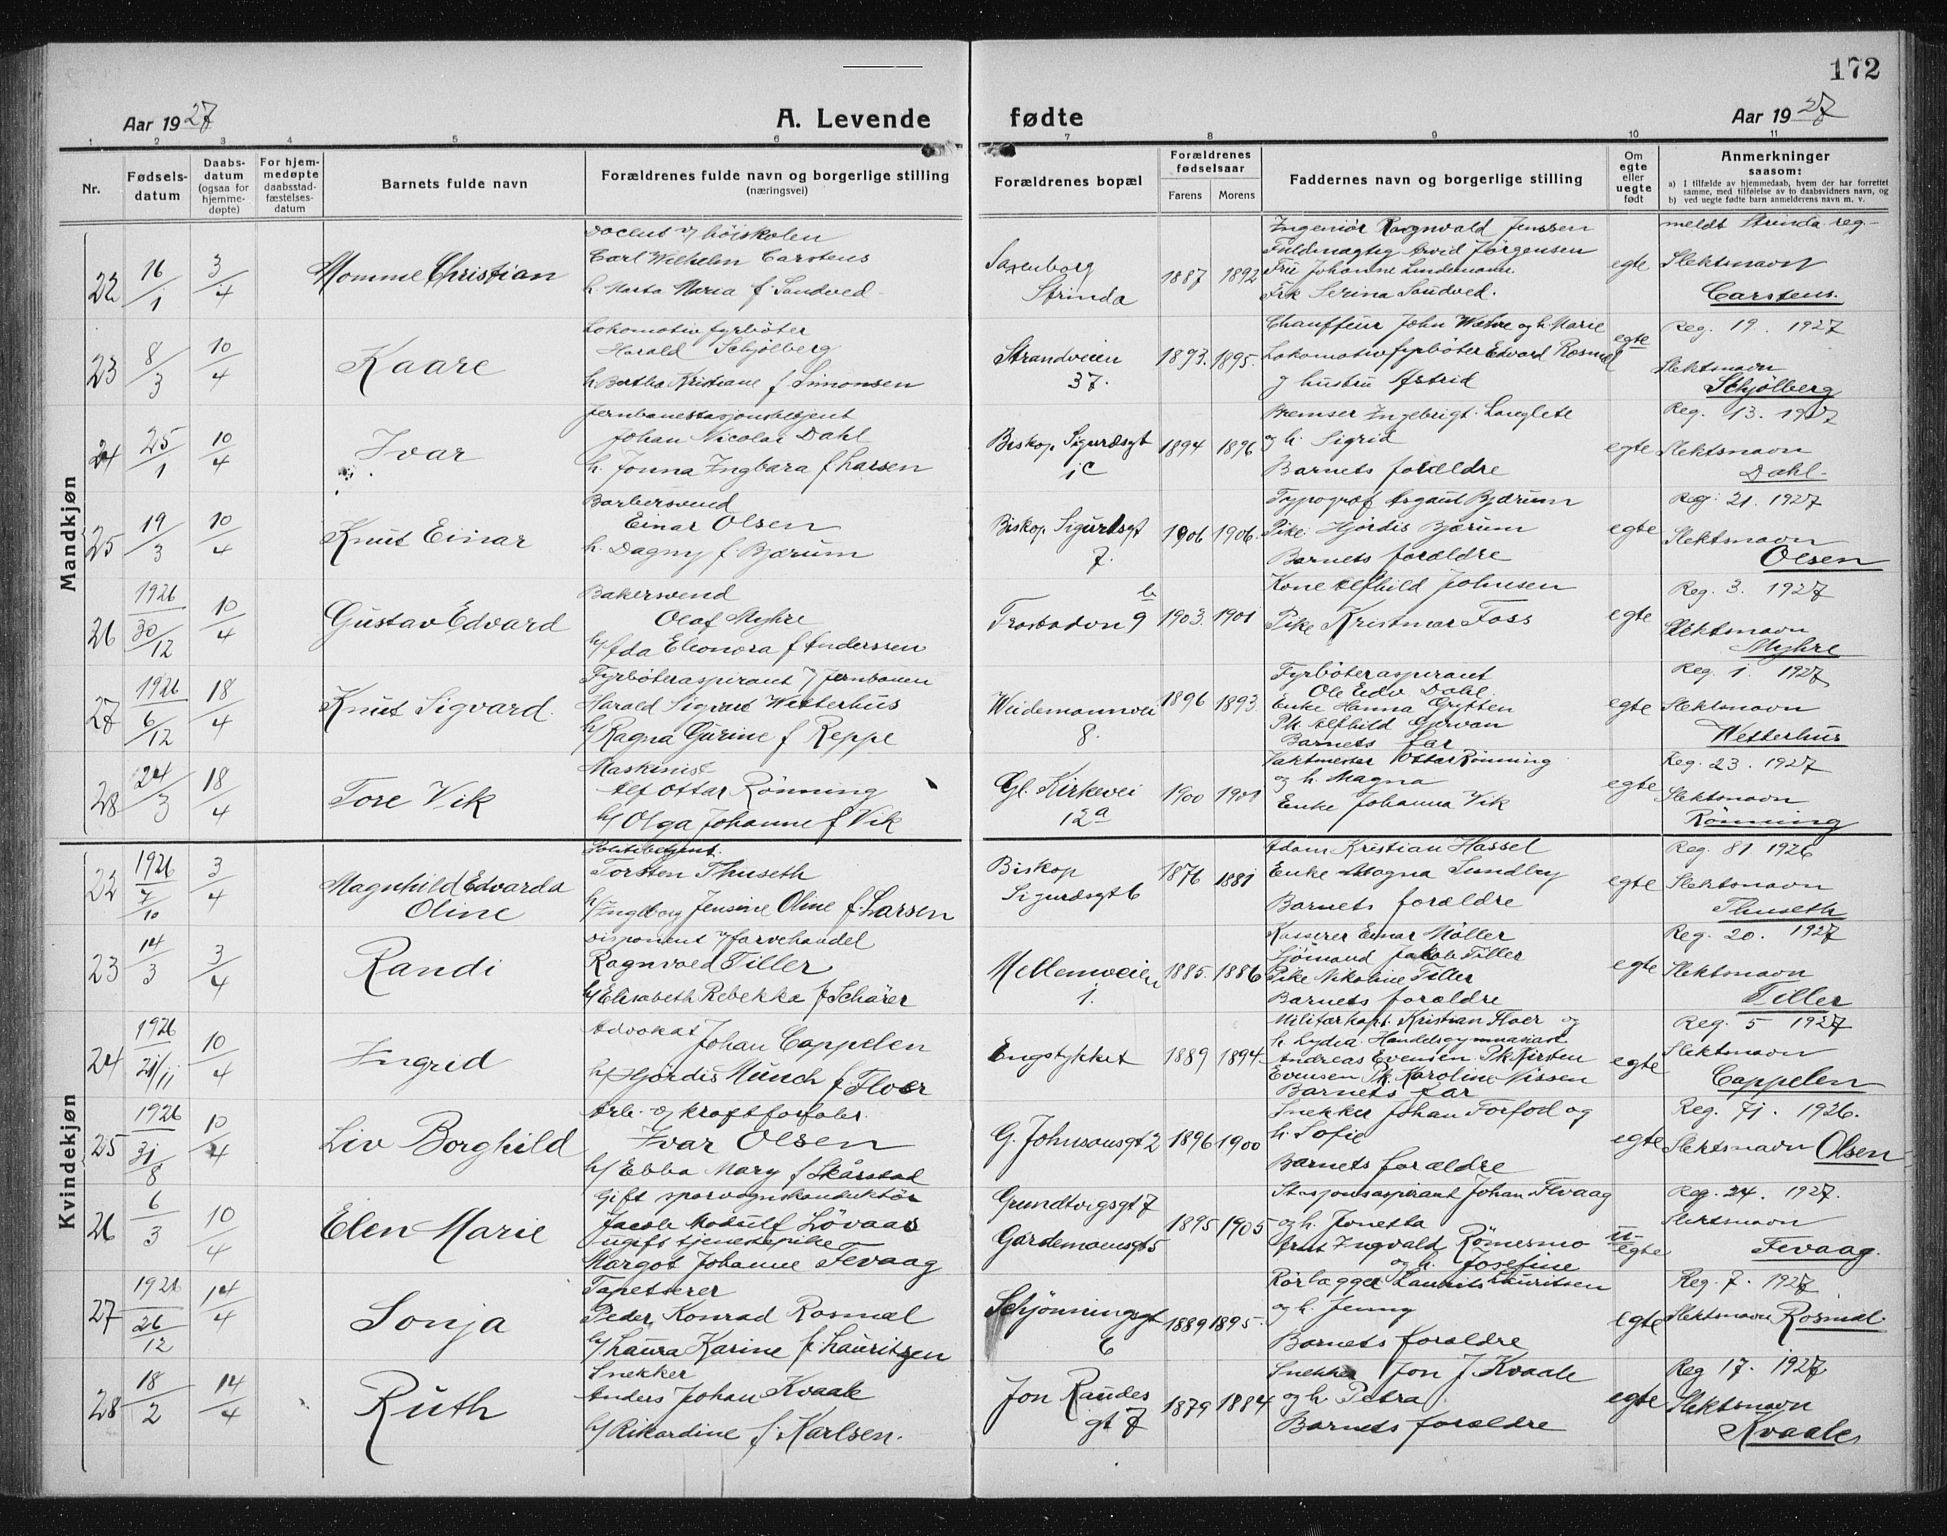 172
Aar 1927
A. Levende fødte
Aar 1927
1 2 3 4 5 6 7 8 9 10 11
Nr.
Fødsels-
datum
Daabs-
datum
(ogsaa for
hjemme-
døpte)
For hjem-
medøpte
daabsstad-
fæstelses-
datum
Barnets fulde navn
Forældrenes fulde navn og borgerlige stilling
(næringsvei)
Forældrenes bopæl
Forældrenes
fødselsaar
Farens Morens
Faddernes navn og borgerlige stilling
Om
egte
eller
uegte
født
Anmerkninger
saasom:
a) I tilfælde av hjemmedaab, hvem der har forrettet
samme, med tilføielse av to daabsvidners navn, og
b) ved uegte fødte barn anmelderens navn m. v.
Mandkjøn
22 16/1 3/4 Momme Christian
Docent v/ høiskolen
Carl Wilhelm Carstens
h. Marta Maria f. Sandved
Saxenborg
Strinda
1887 1892
Ingeniør Ragnvald Jenssen
Fuldmægtig Arvid Jørgensen
Fru Johanne Lindemann
Frk Serina Sandved.
egte
meldt Strinda reg-
Slektsnavn
Carstens.
23 8/3 10/4 Kaare
Lokomotivfyrbøter
Harald Schjølberg
h. Bertha Kristiane f. Simonsen
Strandveien
37.
1893. 1895.
Chauffeur John Wæhre og h. Marie
Lokomotivfyrbøter Edvard Rosmæl
og hustru Astrid
egte
Reg. 19. 1927
Slektsnavn
Schjølberg
24 25/1 10/4 Ivar
Jernbanestasjonsbetjent
Johan Nicolai Dahl
h. Jonna Ingbara f. Larsen
Biskop Sigurdsgt
1c
1894 1896
Bremser Ingebrigt Langlete
og h. Sigrid
Barnets forældre
egte
Reg. 13. 1927
Slektsnavn
Dahl-
25 19/3 10/4 Knut Einar
Barbersvend
Einar Olsen
h. Dagny f. Bjørum
Biskop Sigurdsgt
7.
1906 1906.
Typograf Asgaut Bjørum
Pike Hjørdis Bjørum
Barnets forældre
egte
Reg. 21. 1927
Slektsnavn
Olsen
26 1926 30/12 10/4 Gustav Edvard
Bakersvend
Olaf Myhre
h/ Ada Eleonora f. Anderssen
Trosbodvn 9 b
1903. 1901
Kone Alfhild Johnsen
Pike Kristmar Foss
egte
Reg. 3. 1927
Slektsnavn
Myhre
27 1926 6/12 18/4 Knut Sigvard.
Fyrbøteraspirant v/ Jernbanen
Harald Sigvart Wetterhus
h/ Ragna Gurine f. Reppe
Weidemannvei
8.
1896 1893.
Fyrbøteraspirant
Ole Edv. Dahl.
Enke Hanna Grytten
Pk. Alfhild Gjervan
Barnets far
egte
Reg. 1. 1927
Slektsnavn
Wetterhus
28 24/3 18/4 Tore Vik
Maskinist
Alf Ottar Rønning
h/ Olga Johanne f. Vik
Gl. Kirkevei
12a
1900 1901
Vaktmester Ottar Rønning
og h. Magna
Enke Johanna Vik
egte
Reg. 23. 1927
Slektsnavn
Rønning
Kvindekjøn
22 1926 7/10 3/4 Magnhild Edvarda
Oline
Politibetjent.
Torsten Thuseth
h/ Ingeborg Jensine Oline f. Larsen
Biskop
Sigurdsgt 6
1876 1881
Adam Kristian Hassel
Enke Magna Lundby
Barnets forældre
egte
Reg. 81 1926
Slektsnavn
Thuseth
23 14/3 3/4 Randi
Disponent v/ farvehandel
Ragnvald Tiller
h/ Elisabeth Rebekka f. Schärer
Mellemveien
1.
1885. 1886
Kasserer Einar Møller
Sjømand Jakob Tiller
Pike Nikoline Tiller
Barnets forældre
egte
Reg. 20. 1927
Slektsnavn
Tiller
24 1926 21/11 10/4 Ingrid
Advokat
Johan Cappelen
h/ Hjørdis Münch f. Floer
Engstykket
1889 1894
Militærkapt. Kristian Floer og
h. Lydia Handelsgymnasiast
Andreas Evensen. Pk. Kirsten
Evensen Pk. Karoline Nissen
Barnets far
egte
Reg. 5 1927
Slektsnavn
Cappelen
25 1926 31/8 10/4 Liv Borghild
Arb. og kraftforfabr.
Ivar Olsen
h/ Ebba Mary f. Skårstad
G. Johnsonsgt 2
1896 1900
Snekker Johan Forfod og
h. Sofie
Barnets forældre
egte
Reg. 71. 1926.
Slektsnavn Olsen
26 6/3 10/4 Elen Marie
Gift sporvognskonduktør
Jacob Modulf Løvaas
ugift tjenestepike
Margot Johanne Fevaag
Grundtvigsgt 7
Gardemoensgt 5
1895 1905
Stasjonsaspirant Johan Fevaag
og h. Jonetta
Arnt Ingvald Rømesmo
og h. Josefine
u-
egte
Reg. 24. 1927.
Slektsnavn
Fevaag.
27 1926 26/12 14/4 Sonja
Tapetserer
Peder Konrad Rosmæl
h/ Laura Karine f. Lauritzen
Schjønningsgt
6
1889 1895.
Rørlægger Laurits Lauritsen
og h. Jenny
Barnets forældre
egte
Reg. 7. 1927
Slektsnavn Rosmæl
28 18/2 14/4 Ruth
Snekker
Anders Johan Kvaale
h/ Rikardine f. Karlsen.
Jon Raudes
gt 7
1879 1884
Snekker Jon J. Kvaale
og h. Petra
Barnets forældre
egte
Reg 17. 1927
Slektsnavn
Kvaale